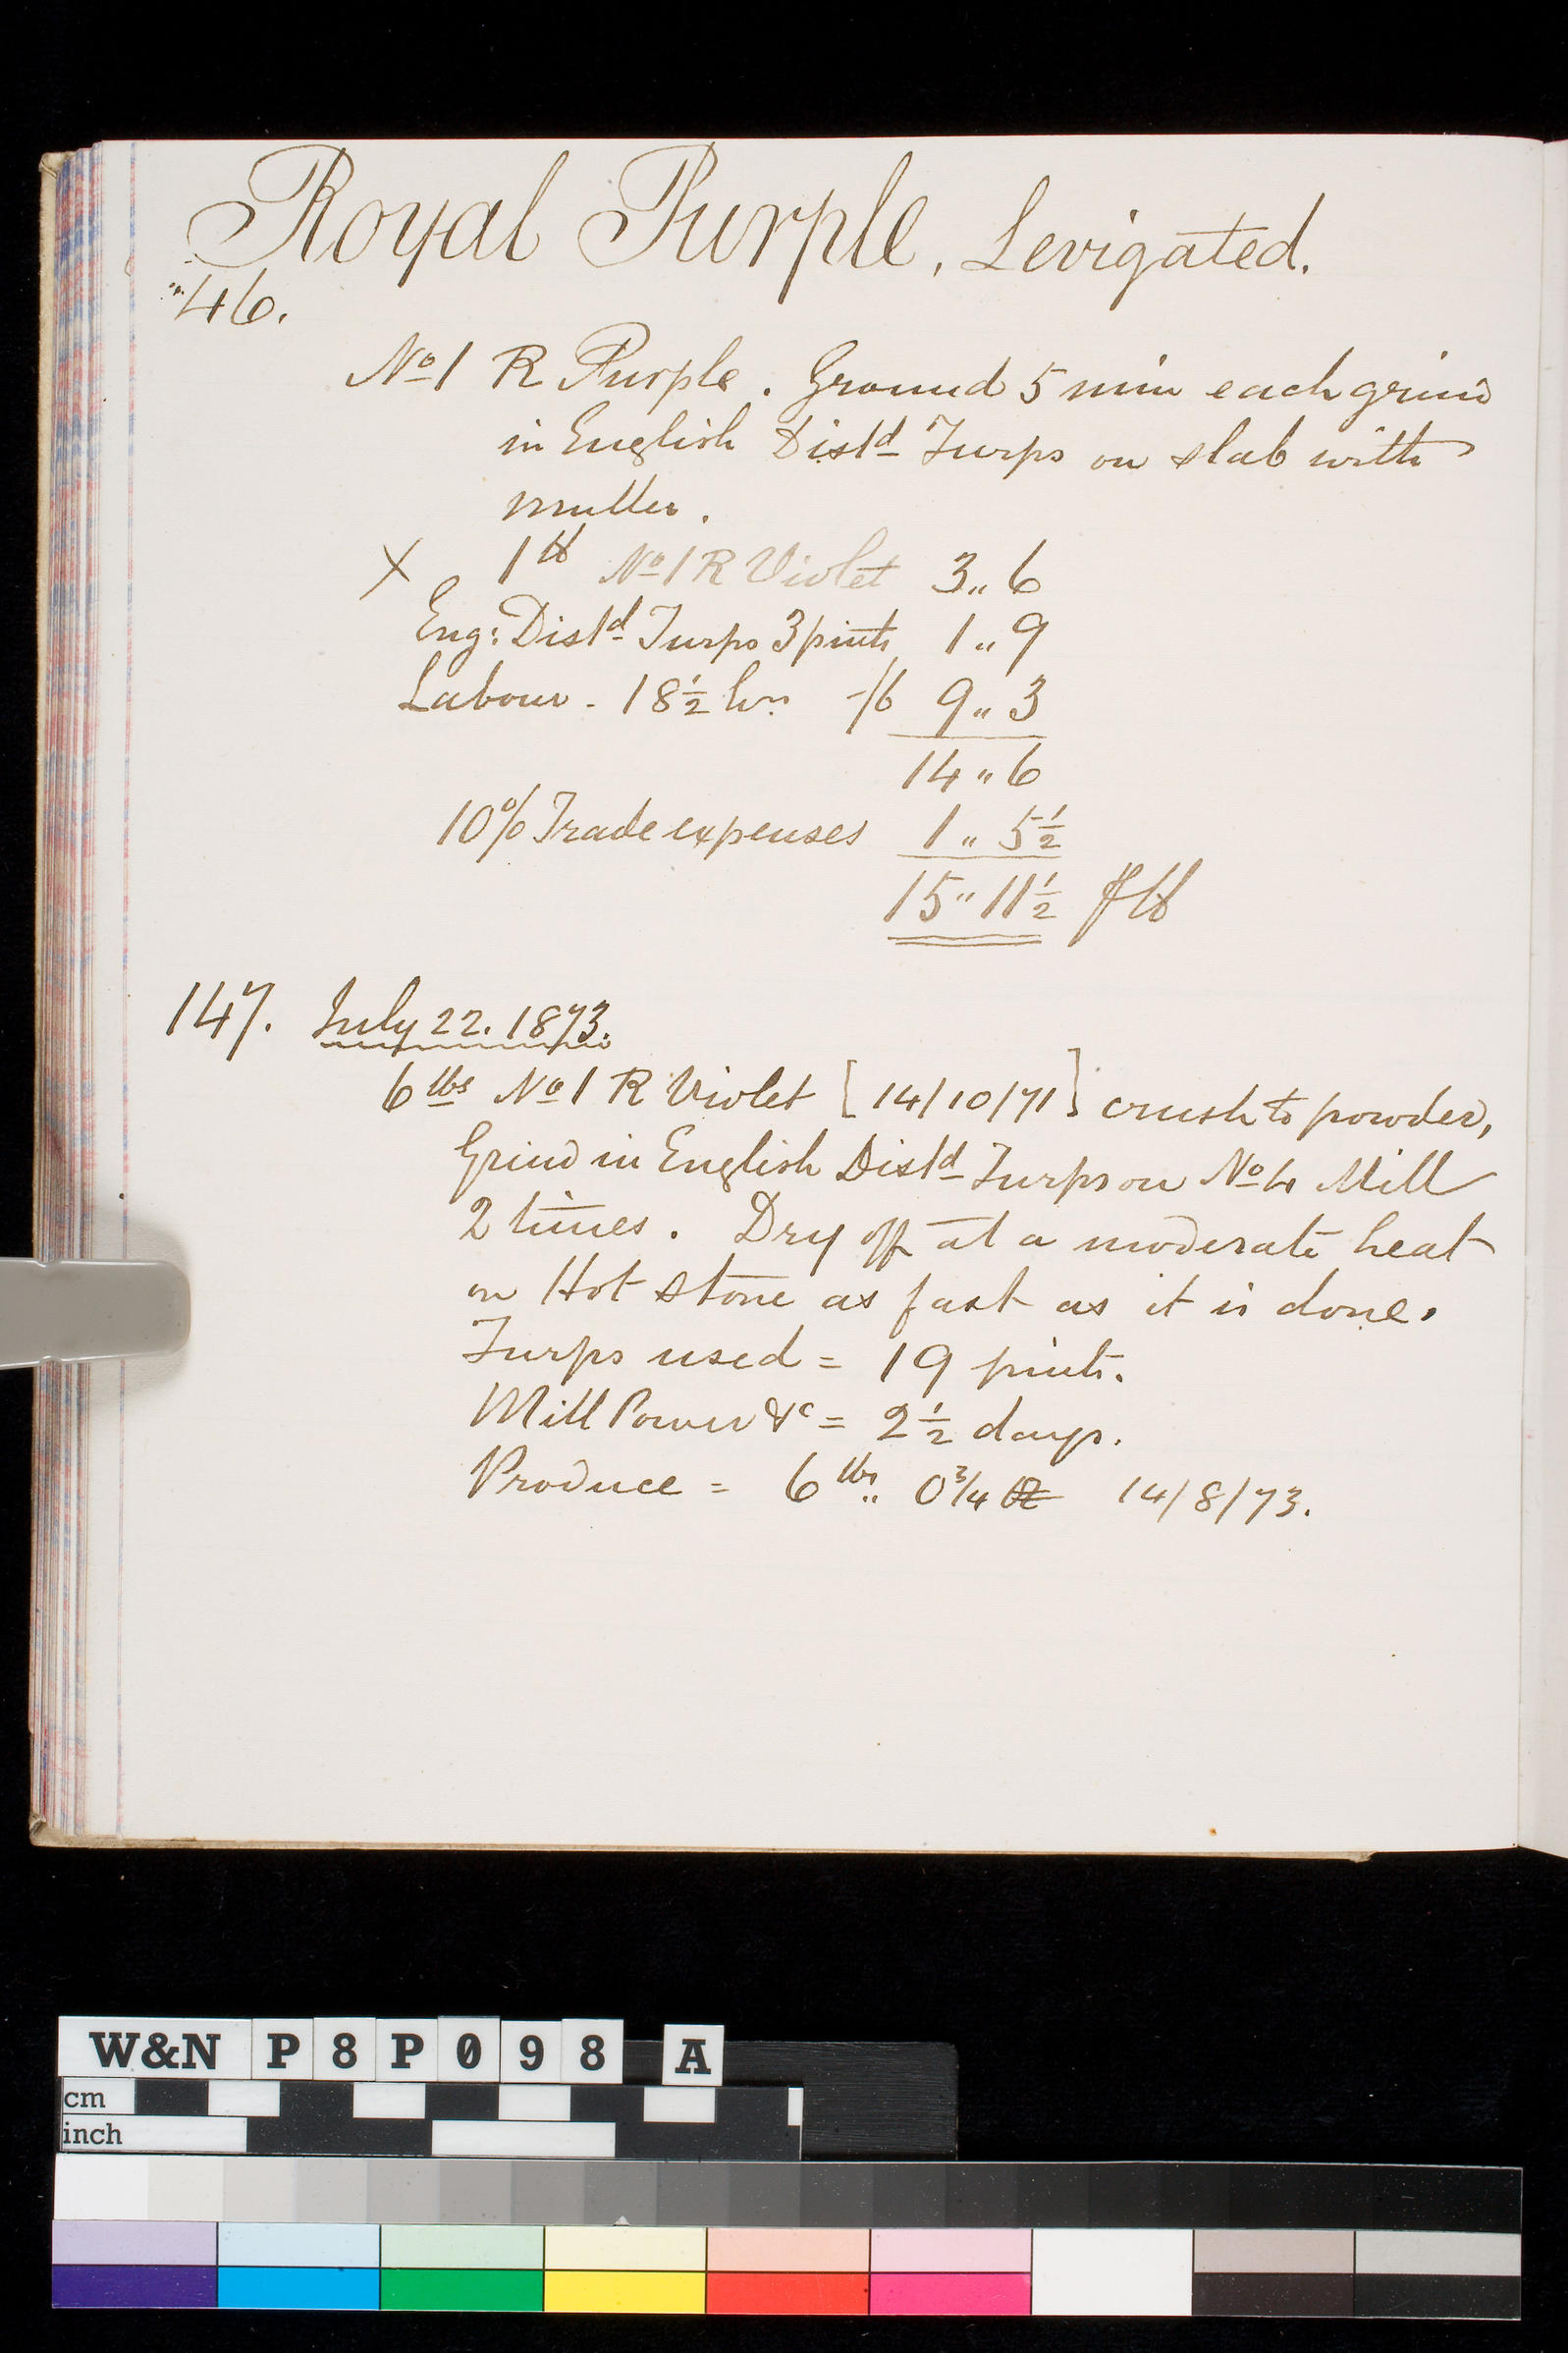 Royal Purple, Levigated.
"46.
No 1 R Purple. Ground 5 min each grind
in English Distd Turps on slab with
muller.
X 1 lb No 1 R Violet 3,, 6
Eng: Distd Turps 3 pints 1 ,, 9
Labour - 18½ hrs -/6 9 ,, 3
14 ,, 6
10% Trade expenses 1 ,, 5½
15 ,, 11½ ⅌ lb
147. July 22. 1873.
6 lbs No 1 R Violet [14/10/71] crush to powder,
Grind in English Distd Turps on No 4 Mill
2 times. Dry off at a moderate heat
on Hot stone as fast as it is done.
Turps used = 19 pints.
Mill Power &c = 2½ days.
Produce = 6 lbs ,, 0¾ oz 14/8/73.
W&N P8P098 A
cm
inch